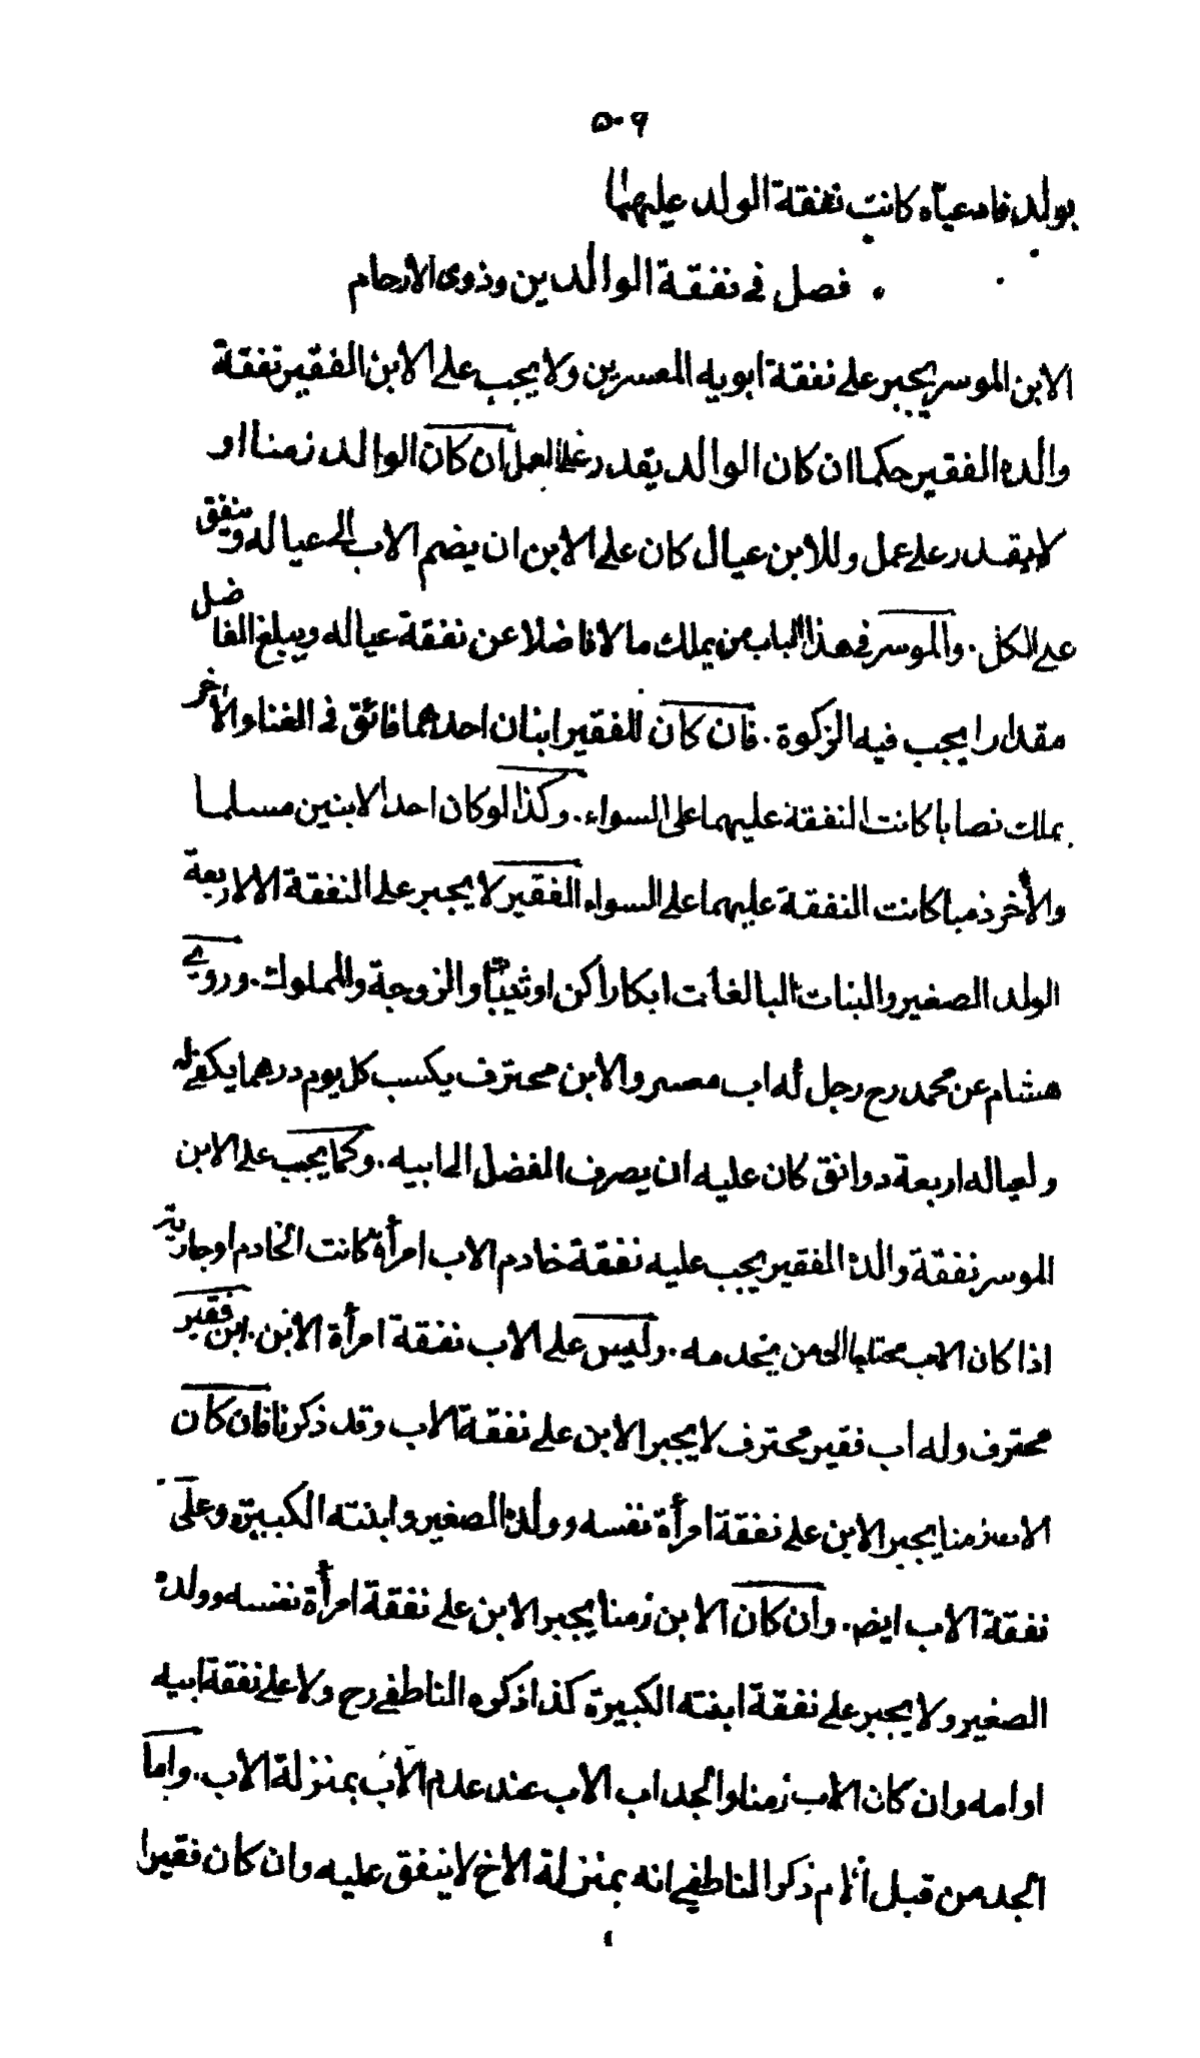 ٥٠٩
بولد فادعياه كانت نفقة الولد عليهما
فصل في نفقة الوالدين وذوى الارحام
الابن الموسر يجبر على نفقة ابويه المعسرين ولا يجب على الابن الفقير نفقة
والده الفقير حكما ان كان الوالد يقدر على العمل ان كان الوالد زمنا او
لا يقدر على عمل وللابن عيال كان على الابن ان يضم الاب الى عياله وينفق
على الكل . والموسر في هذا الباب من يملك مالا فاضلا عن نفقة عياله ويبلغ الفاضل
مقدارا يجب فيه الزكوة . فان كان للفقير ابنان احدهما فائق في الغنا والأخر
يملك نصابا كانت النفقة عليهما على السواء . وكذا لو كان احد الابنين مسلما
والأخر ذميا كانت النفقة عليهما على السواء الفقير لا يجبر على النفقة الا لاربعة
الولد الصغير والبنات البالغات ابكارا كن او ثيبا والزوجة والمملوك . وروي
هشام عن محمد رح رجل له اب معسر والابن محترف يكسب كل يوم درهما يكفي له
ولعياله اربعة دوانق كان عليه ان يصرف الفضل الى ابيه . وكما يجب على الابن
الموسر نفقة والده الفقير يجب عليه نفقة خادم الاب امرأة كانت الخادم او جارية
اذا كان الاب محتاجا الى من يخدمه . وليس على الاب نفقة امرأة الابن . ابن فقير
محترف وله اب فقير محترف لا يجبر الابن على نفقة الاب وقد ذكرنا فان كان
الاب زمنا يجبر الابن على نفقة امرأة نفسه وولده الصغير وابنته الكبيرة وعلى
نفقة الاب ايضا . وان كان الابن زمنا يجبر الابن على نفقة امرأة نفسه وولده
الصغير ولا يجبر على نفقة ابنته الكبيرة كذا ذكره الناطفي رح ولا على نفقة ابيه
او امه وان كان الاب زمنا والجد اب الاب عند عدم الاب بمنزلة الاب . واما
الجد من قبل الام ذكر الناطفي انه بمنزلة الاخ لا ينفق عليه وان كان فقيرا